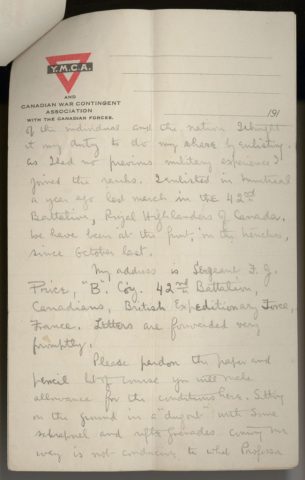 Y.M.C.A.
AND
CANADIAN WAR CONTINGENT
ASSOCIATION
WITH THE CANADIAN FORCES.
191
of the individual and the nation I thought
it my duty to do my share by enlisting.
As I had no previous military experience I
joined the ranks. I enlisted in Montreal
a year ago last march in the 42nd
Battalion, Royal Highlanders of Canada.
We have been at the front, in the trenches,
since October last.
My address is Sergeant F. G.
Price, "B" Coy. 42nd Battalion,
Canadians, British Expeditionary Force,
France. Letters are forwarded very
promptly.
Please pardon the paper and
pencil but of course you will make
allowance for the conditions here. Sitting
on the ground in a "dugout" with some
schrapnel and rifle grenades coming our
way is not conducive to what Professor